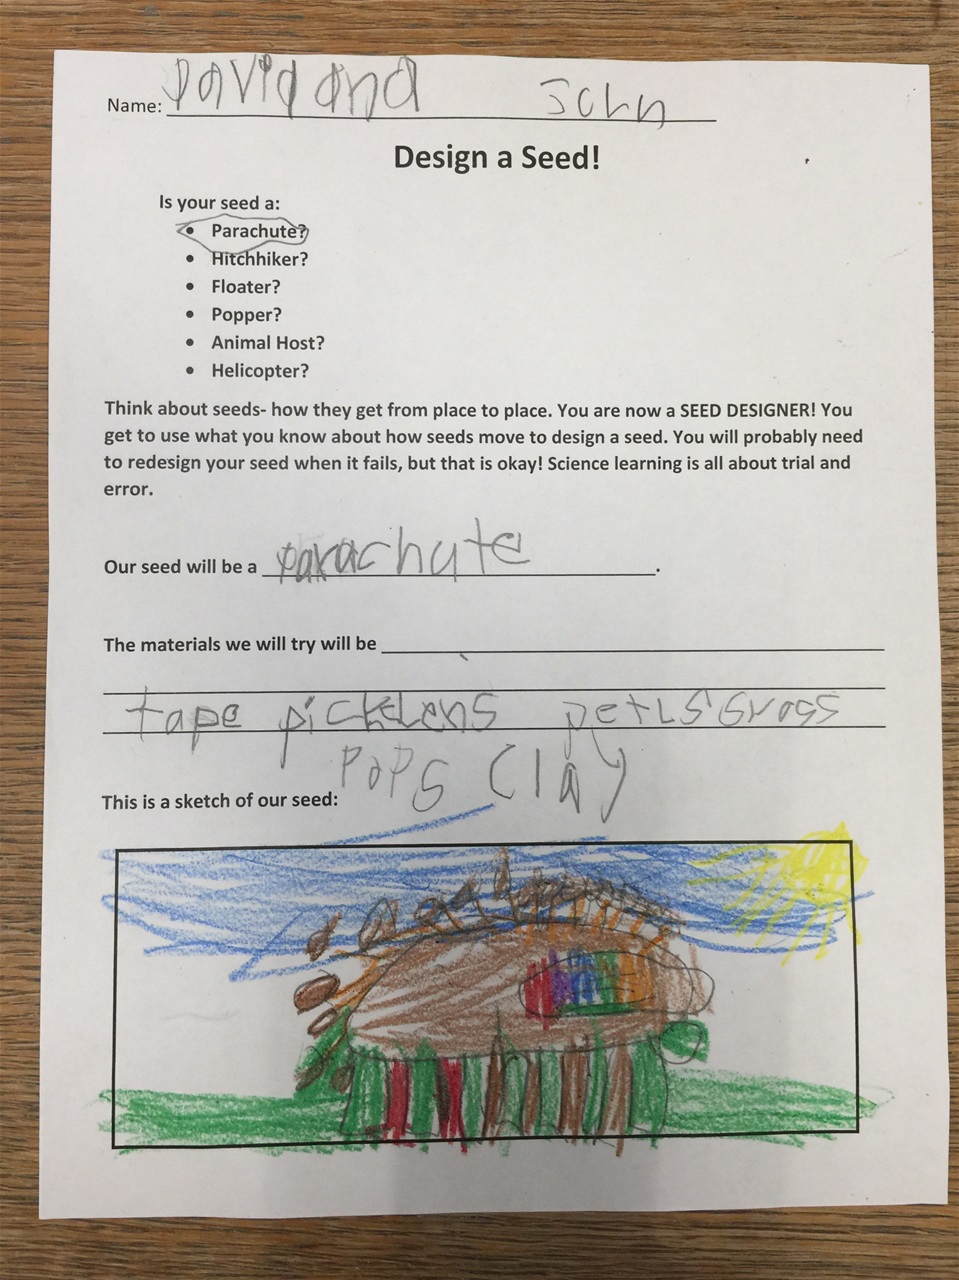 Name: David and John
Design a Seed!
Is your seed a:
• Parachute?
• Hitchhiker?
• Floater?
• Popper?
• Animal Host?
• Helicopter?
Think about seeds- how they get from place to place. You are now a SEED DESIGNER! You
get to use what you know about how seeds move to design a seed. You will probably need
to redesign your seed when it fails, but that is okay! Science learning is all about trial and
error.
Our seed will be a parachute.
The materials we will try will be
tape petls grass
pops clay
This is a sketch of our seed: